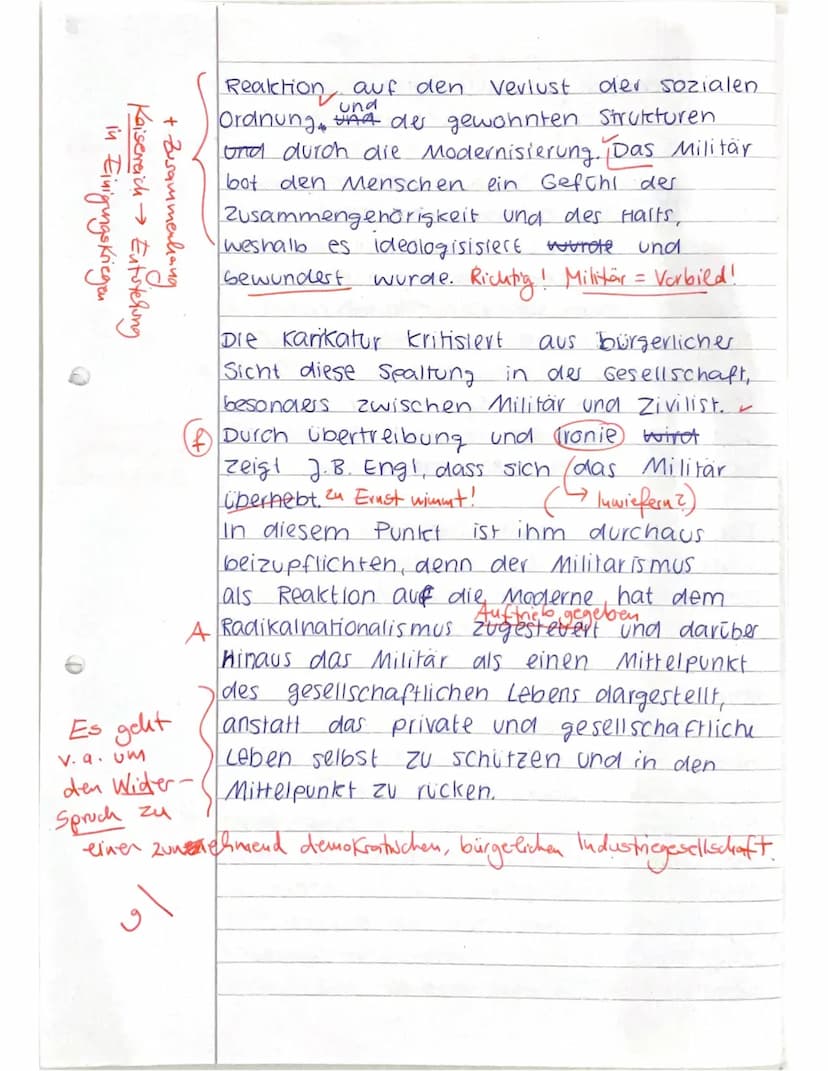 Reaktion auf den Verlust der sozialen
Ordnung. und und der gewohnten Strukturen
und durch die Modernisierung. Das Militär
bot den Menschen ein Gefühl der
Zusammengehörigkeit und des Halts,
weshalb es ideologisisiert wurde und
bewundert wurde. Richtig! Militär = Vorbild!
+ Zusammenhang
Kaiserreich → Entstehung
in Einigungskriegen
Die Karikatur kritisiert aus bürgerlicher
Sicht diese Spaltung in der Gesellschaft,
besonders zwischen Militär und Zivilist.
(f) Durch Übertreibung und Ironie wird
zeigt J.B. Engl, dass sich das Militär
überhebt. zu Ernst nimmt! (→ Inwiefern?)
In diesem Punkt ist ihm durchaus
beizupflichten, denn der Militarismus
als Reaktion auf die Moderne hat dem
Auftrieb gegeben
A Radikalnationalismus zugesteuert und darüber
hinaus das Militär als einen Mittelpunkt
des gesellschaftlichen Lebens dargestellt,
anstatt das private und gesellschaftliche
Leben selbst zu schützen und in den
Mittelpunkt zu rücken.
Es geht
v.a. um
den Wider-
Spruch zu
einer zunehmend demokratischen, bürgerlichen Industriegesellschaft.